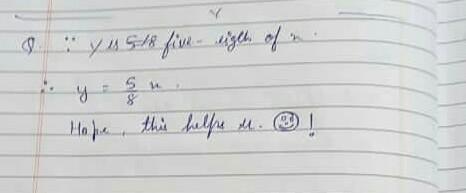 Q. ∵ y is 5/8 five-eigth of x.
∴ y = 5/8 x.
Hope, this helps u. ☺!